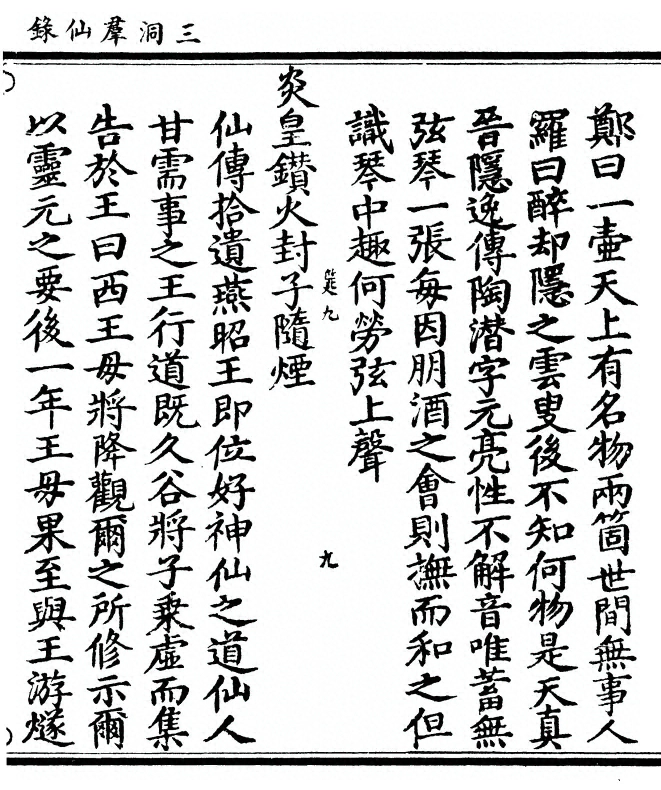 三洞羣仙錄
鄭曰一壷天上有名物兩箇世間無事人
羅曰醉却隱之雲叟後不知何物是天真
晉隱逸傳陶潜字元亮性不解音唯蓄無
弦琴一張每因朋酒之會則撫而和之但
識琴中趣何勞弦上聲
筵九
九
炎皇鑚火封子隨煙
仙傳拾遺燕昭王即位好神仙之道仙人
甘需事之王行道既久谷將子乗虛而集
告於王曰西王毋將降觀爾之所修示爾
以靈元之要後一年王毋果至與王游燧